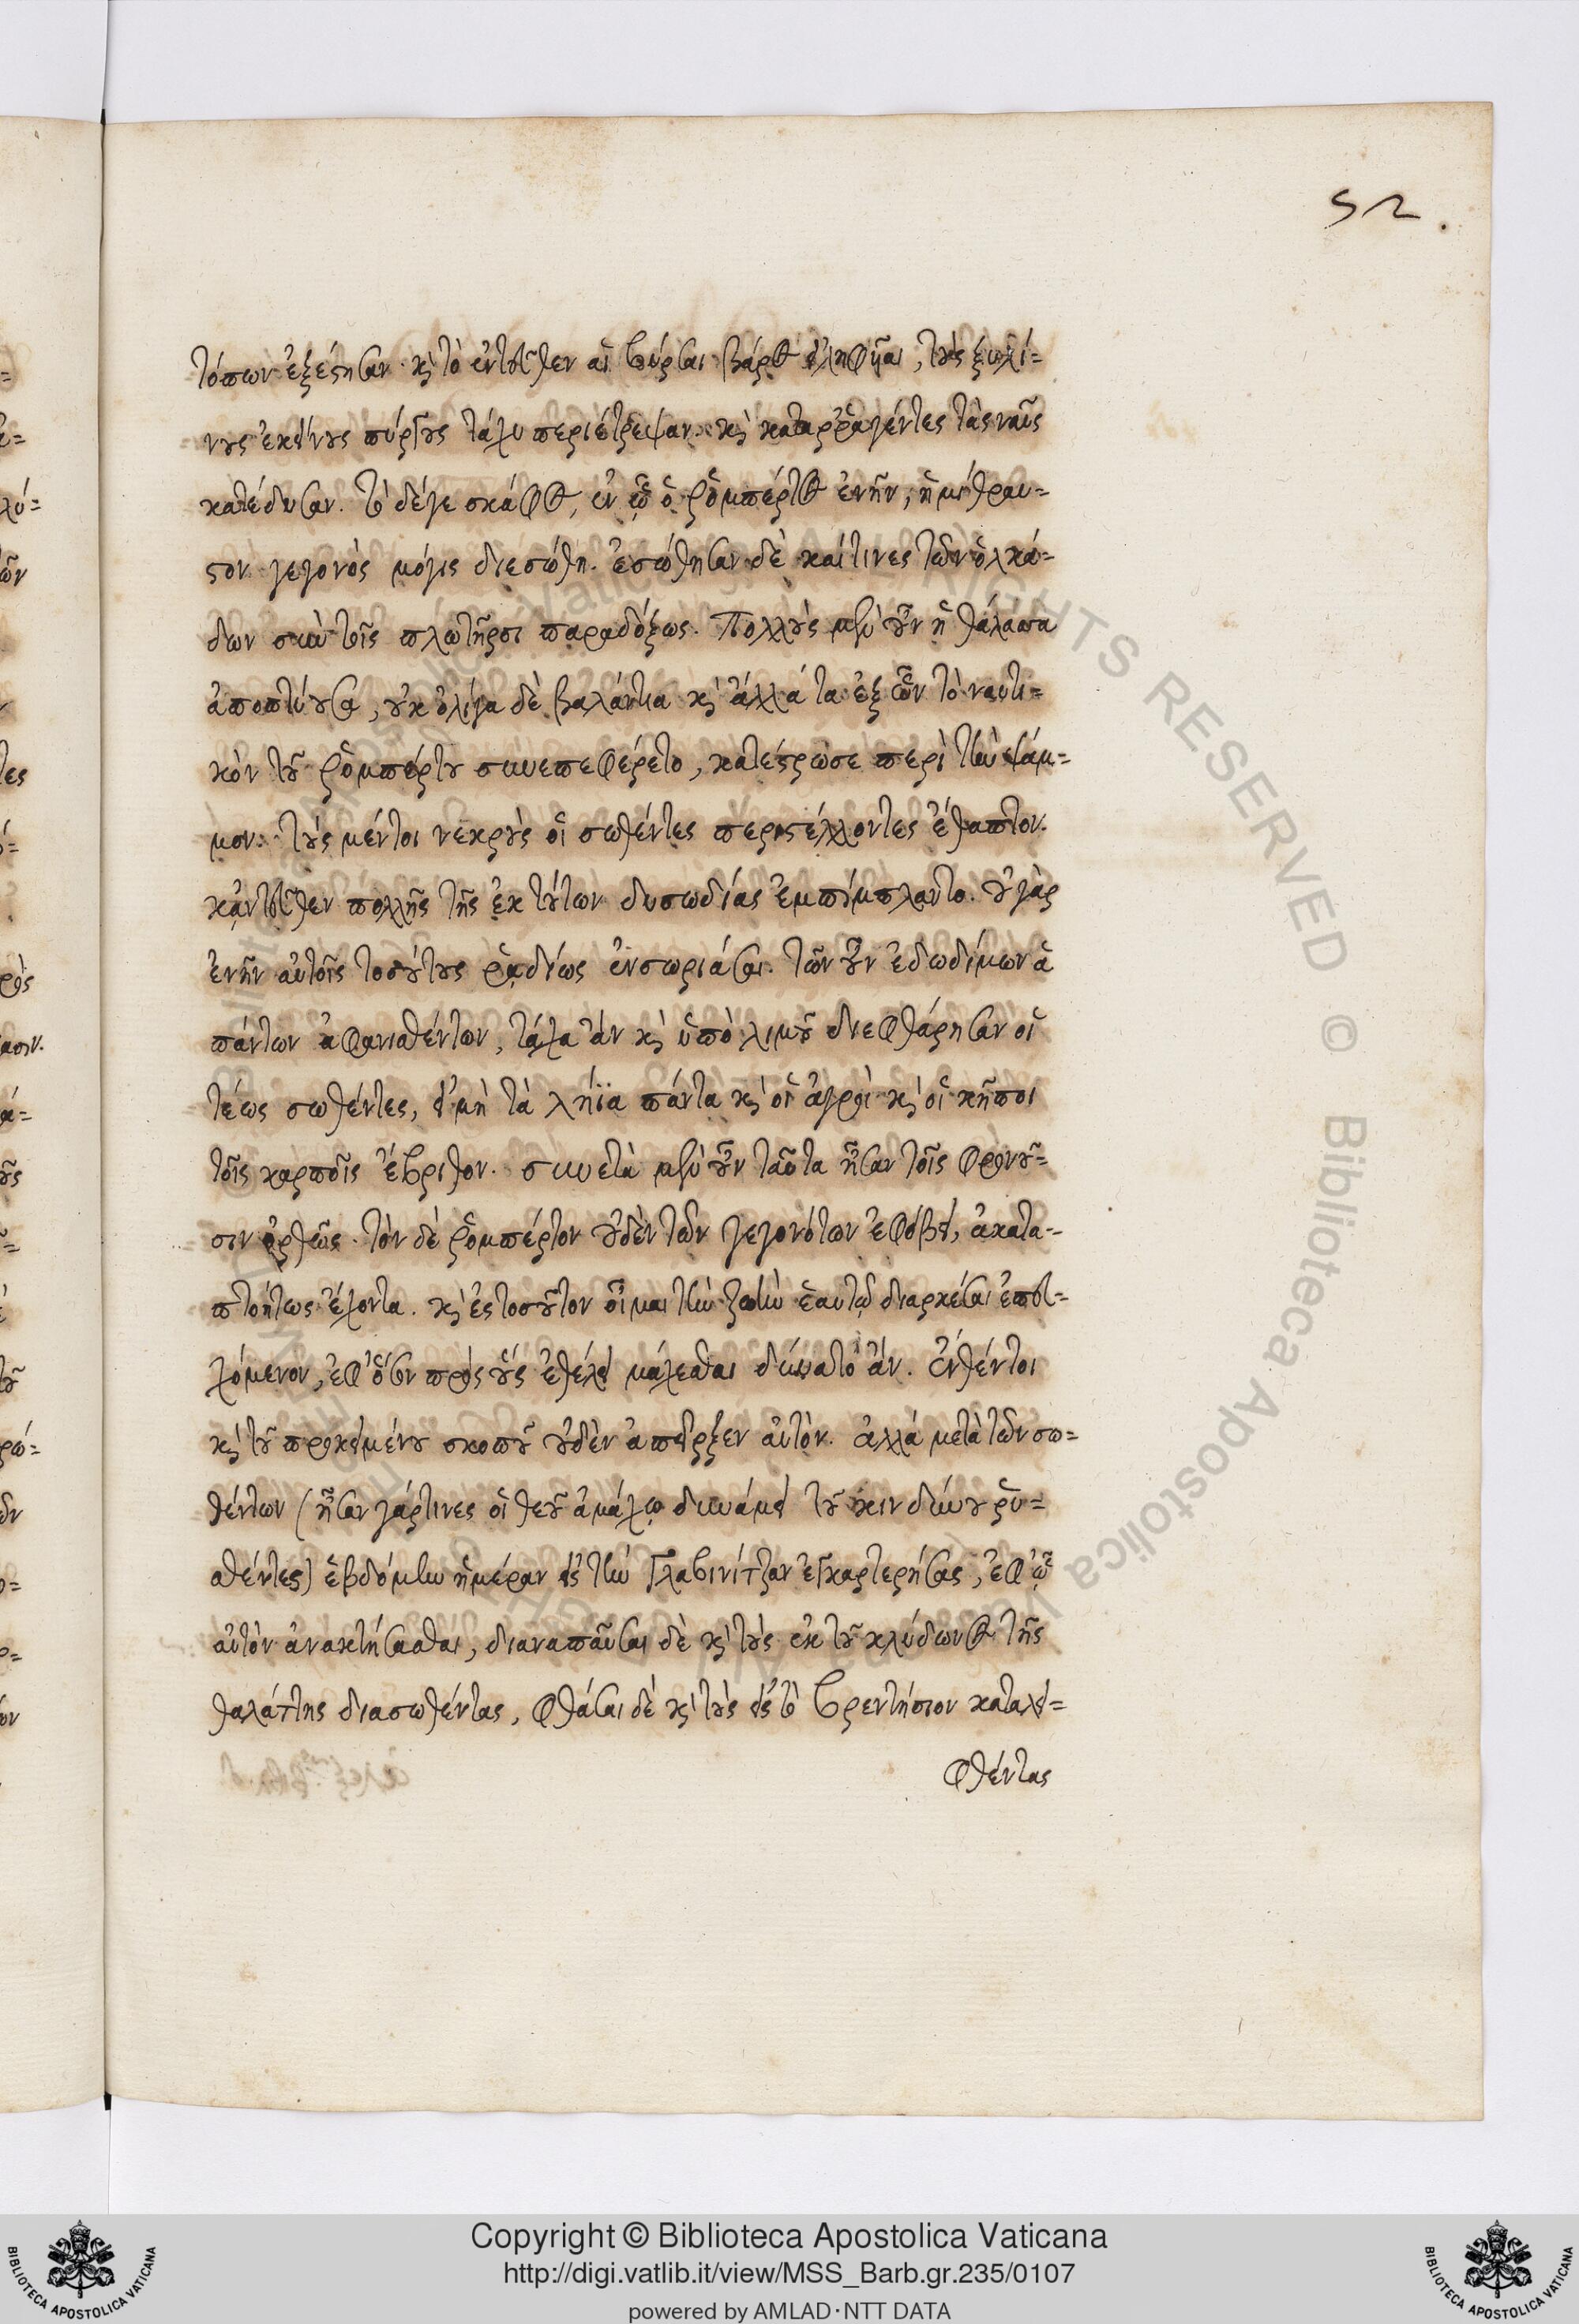 52.
τόπων ἐξέστησαν· καὶ τὸ ἐντεῦθεν αἱ βύρσαι βάρος εἰληφυῖαι, τοὺς ξυλί=
νους ἐκείνους πύργους τάχυ περιέτρεψαν. καὶ καταρραγέντες τὰς ναῦς
κατέδυσαν. τὸ δέ γε σκάφος, ἐν ᾧ ὁ ῥομπέρτος ἐνῆν, ἡμίθραυ=
στον γεγονὸς μόγις διεσώθη. ἐσώθησαν δὲ καί τινες τῶν ὁλκά=
δων σὺν τοῖς πλωτῆρσι παραδόξως. Πολλοὺς μὲν οὖν ἡ θάλασσα
ἀποπτύουσα, οὐκ ὀλίγα δὲ βαλάντια καὶ ἄλλά τα ἐξ ὧν τὸ ναυτι=
κὸν τοῦ ῥομπέρτου συνεπεφέρετο, κατέστρωσε περὶ τὴν ψάμ=
μον. τοὺς μέντοι νεκροὺς οἱ σωθέντες περιστέλλοντες ἔθαπτον.
κἀντεῦθεν πολλῆς τῆς ἐκ τούτων δυσωδίας ἐμπίμπλαντο. οὐ γὰρ
ἐνῆν αὐτοῖς τοσούτους ῥᾳδίως ἐνσωριάσαι. τῶν οὖν ἐδωδίμων ἁ
πάντων ἀφανισθέντων, τάχα ἂν καὶ ὑπὸ λιμοῦ διεφθάρησαν οἱ
τέως σωθέντες, εἰ μὴ τὰ λήϊα πάντα καὶ οἱ ἀγροὶ καὶ οἱ κῆποι
τοῖς καρποῖς ἔβριθον. συνετὰ μὲν οὖν ταῦτα ἦσαν τοῖς φρονοῦ=
σιν ὀρθῶς. τὸν δὲ ῥομπέρτον οὐδὲν τῶν γεγονότων ἐφόβει, ἀκατα=
πτοήτως ἔχοντα. καὶ ἐς τοσοῦτον οἶμαι τὴν ζωὴν ἑαυτῷ διαρκέσαι ἐπευ=
χόμενον, ἐφ' ὅσον πρὸς οὓς ἐθέλει μάχεσθαι δύναιτο ἄν. ἐνθέντοι
καὶ τοῦ προκειμένου σκοποῦ οὐδὲν ἀπεῖρξεν αὐτόν. ἀλλὰ μετὰ τῶν σω=
θέντων (ἦσαν γάρ τινες οἱ θεοῦ ἀμάχῳ δυνάμει τοῦ κινδύνου ῥυ=
σθέντες) ἑβδόμην ἡμέραν εἰς τὴν Γλαβινίτζαν ἐγκαρτερήσας, ἐφ' ᾧ
αὐτὸν ἀνακτήσασθαι, διαναπαῦσαι δὲ καὶ τοὺς ἐκ τοῦ κλύδωνος τῆς
θαλάττης διασωθέντας, φθάσαι δὲ καὶ τοὺς εἰς τὸ βρεντήσιον καταλει=
φθέντας
Copyright © Biblioteca Apostolica Vaticana
http://digi.vatlib.it/view/MSS_Barb.gr.235/0107
powered by AMLAD·NTT DATA